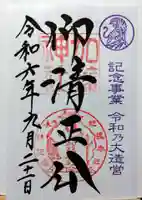 記念事業 令和乃大造営
御清正公
令和六年九月二十一日